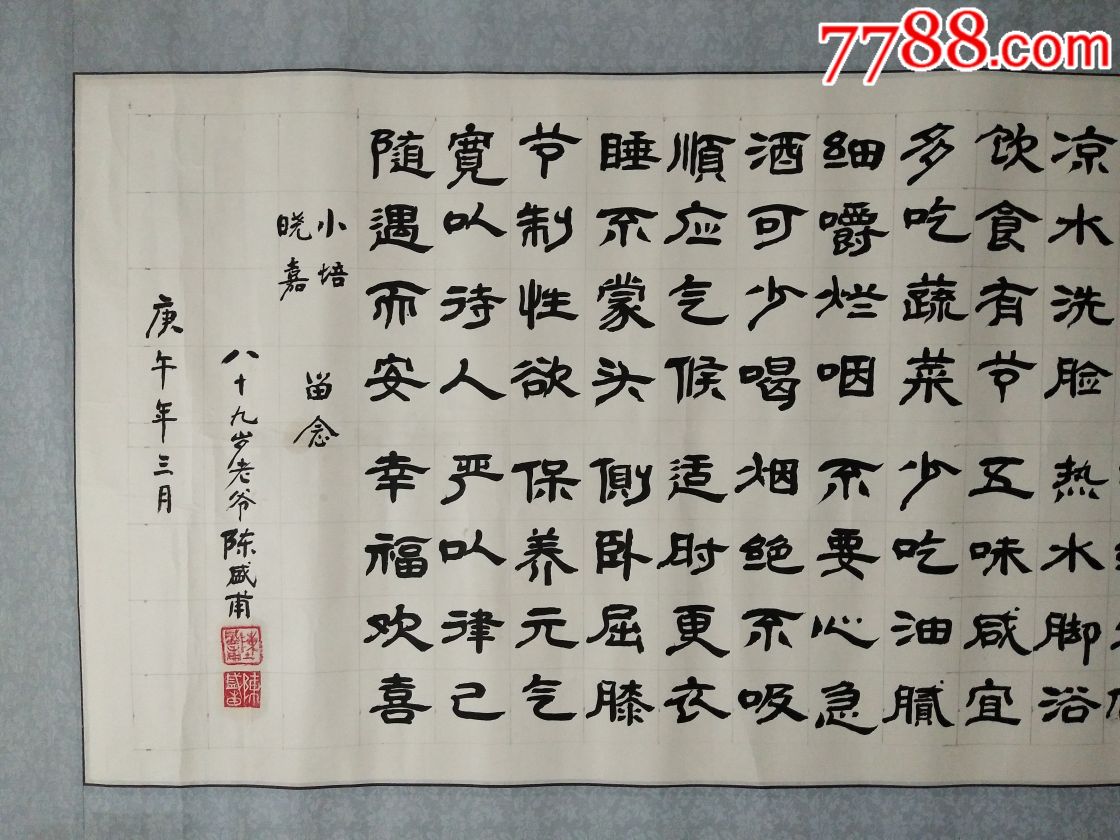 7788.com
凉水洗脸热水脚浴
饮食有节五味咸宜
多吃蔬菜少吃油腻
细嚼烂咽不要心急
酒可少喝烟绝不吸
顺应气候适时更衣
睡不蒙头侧卧屈膝
节制性欲保养元气
宽以待人严以律己
随遇而安幸福欢喜
小培
晓嘉
留念
八十九岁老爷陈盛甫
庚午年三月